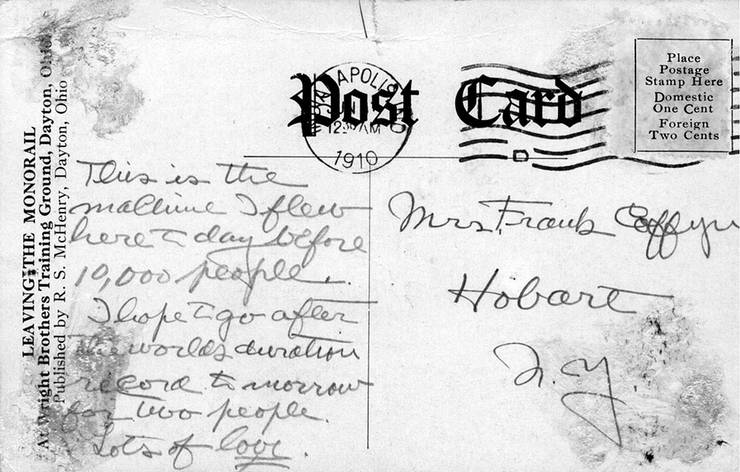 Post Card
APOLIS
12:30 AM
1910
Place
Postage
Stamp Here
Domestic
One Cent
Foreign
Two Cents
D
LEAVING THE MONORAIL
At Wright Brothers Training Ground, Dayton, Ohio
Published by R. S. McHenry, Dayton, Ohio
This is the
machine I flew
here to day before
10,000 people.
I hope to go after
the worlds duration
record to morrow
for two people.
Lots of love.
Mrs Frank Coffyn
Hobart
N.Y.